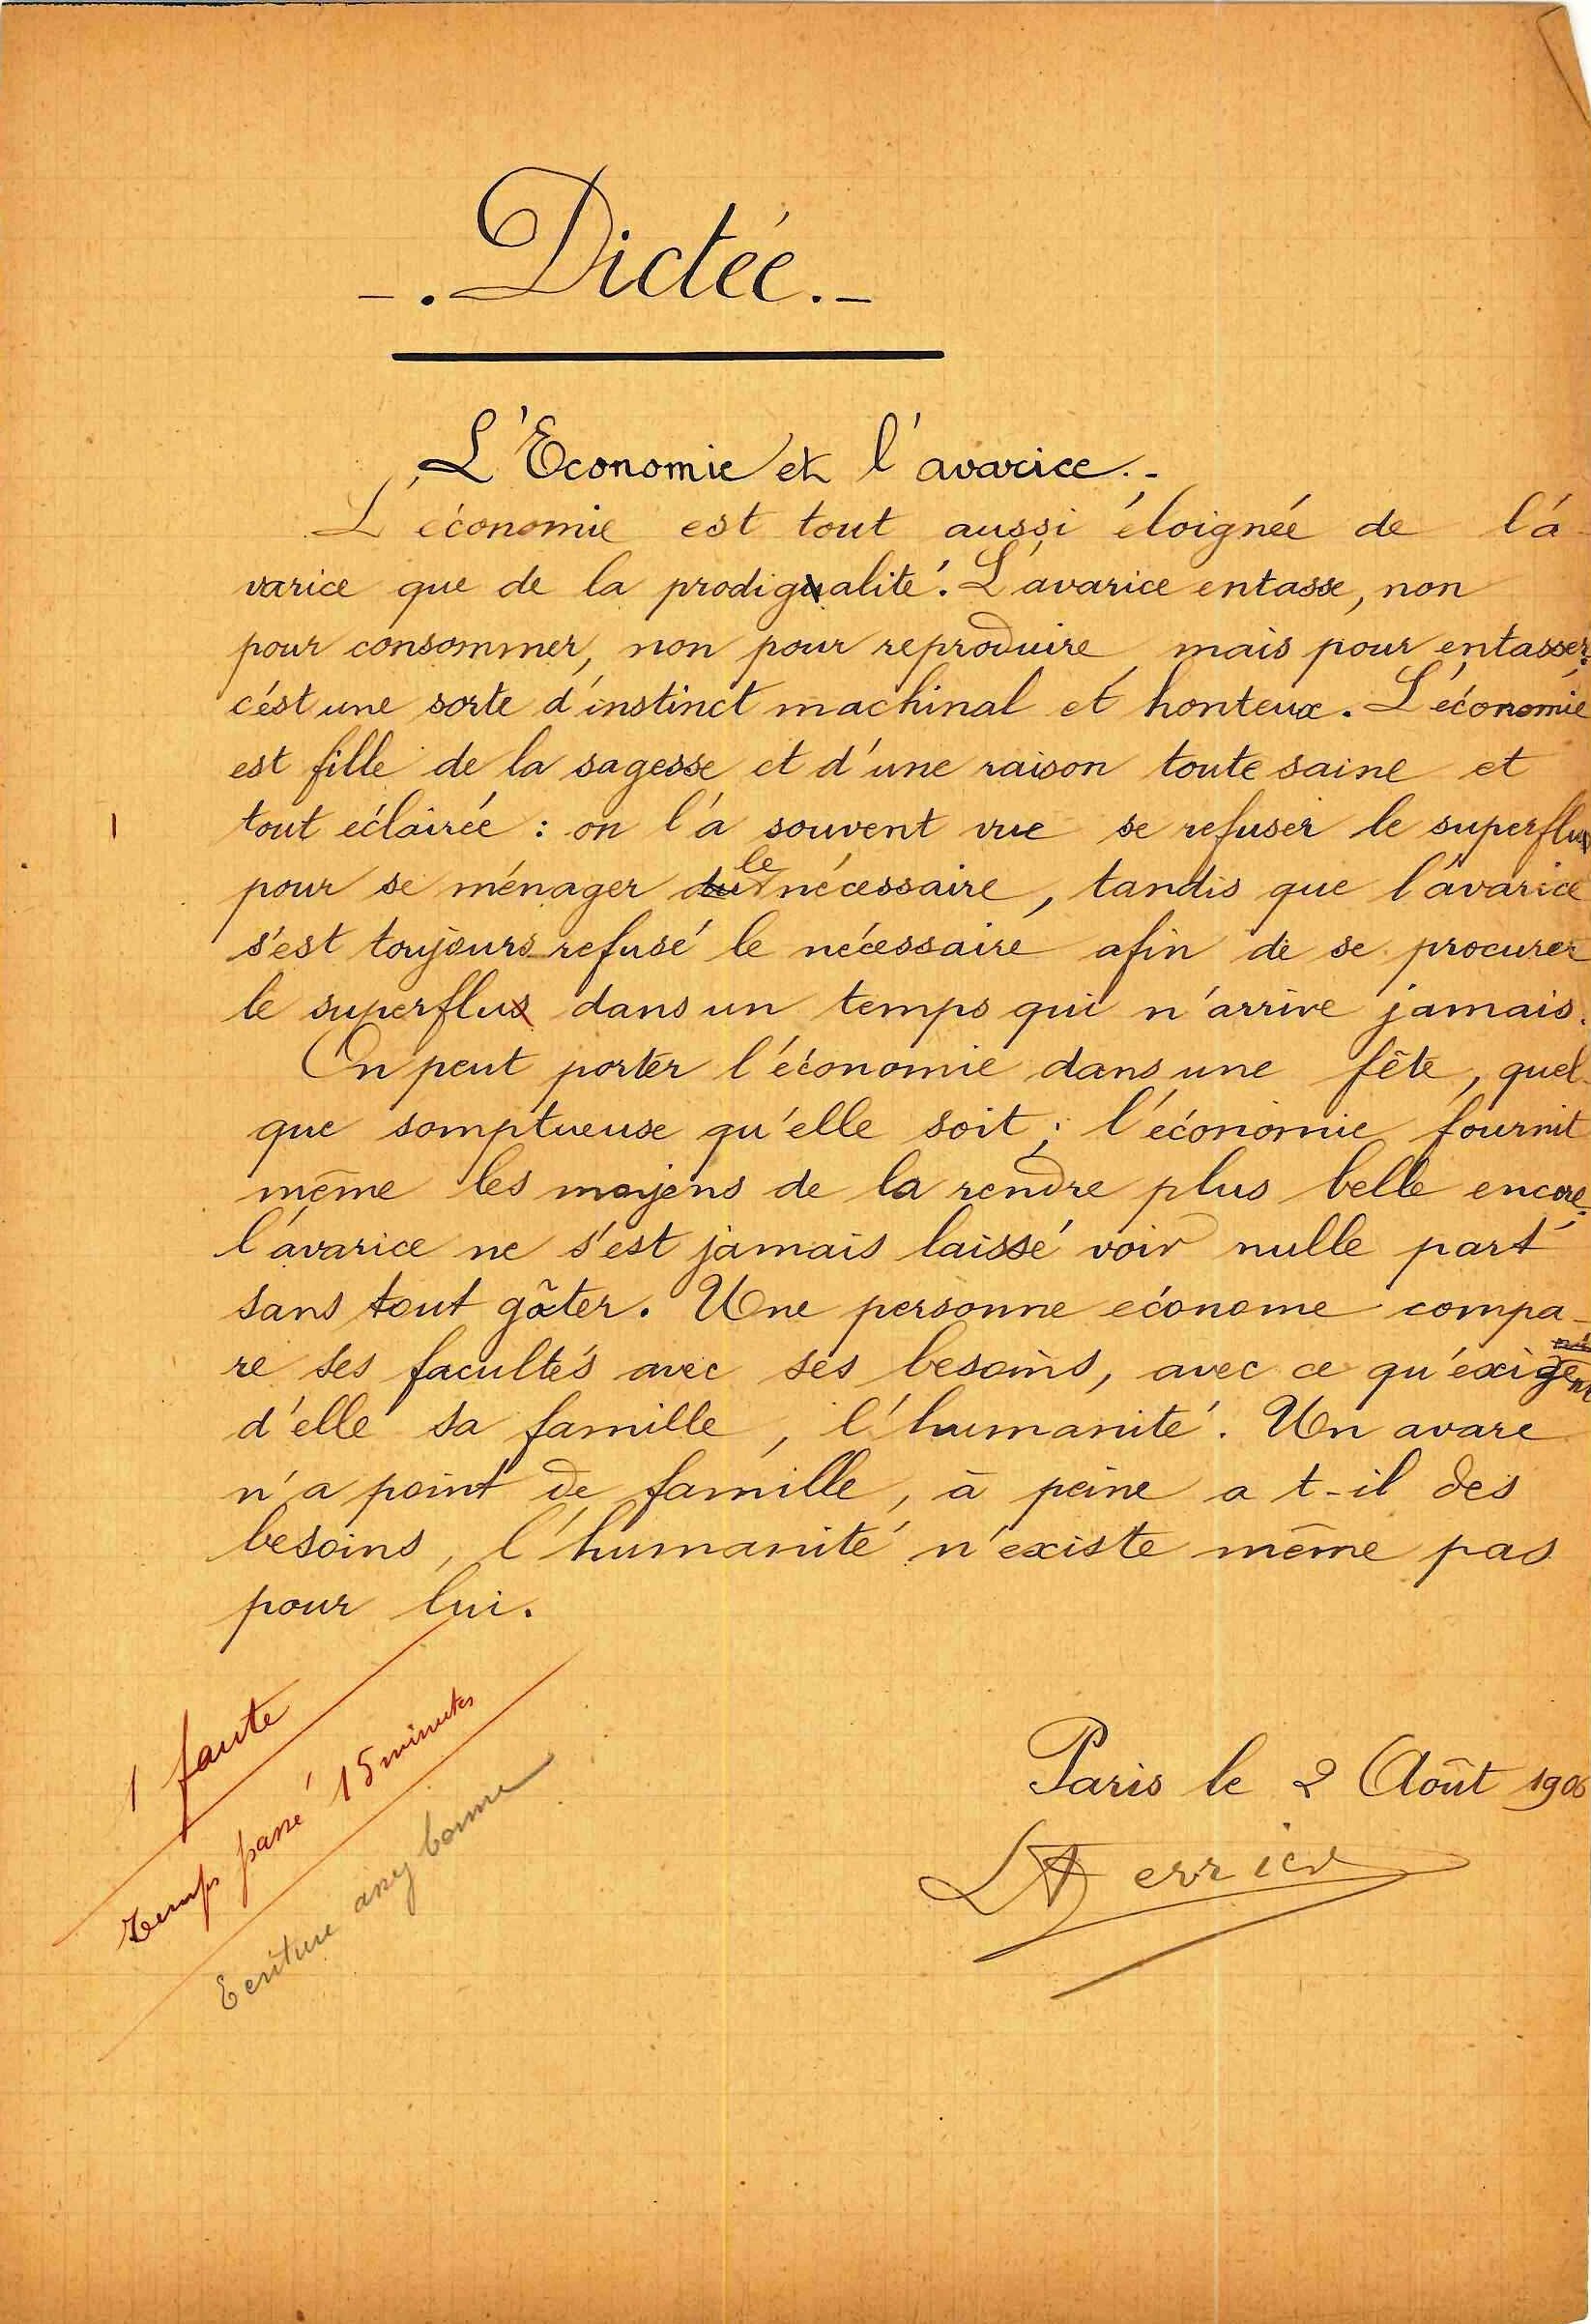 -. Dictée.-
L'Economie et l'avarice.-
L'économie est tout aussi éloignée de l'a-
varice que de la prodigalité. L'avarice entasse, non
pour consommer, non pour reproduire, mais pour entasser:
c'est une sorte d'instinct machinal et honteux. L'économie
est fille de la sagesse et d'une raison toute saine et
1 tout éclairée : on l'a souvent vue se refuser le superflu
pour se ménager du le nécessaire, tandis que l'avarice
s'est toujours refusé le nécessaire afin de se procurer
le superflus dans un temps qui n'arrive jamais.
On peut porter l'économie dans une fête, quel-
que somptueuse qu'elle soit ; l'économie fournit
même les moyens de la rendre plus belle encore:
l'avarice ne s'est jamais laissé voir nulle part
sans tout gâter. Une personne économe compa-
re ses facultés avec ses besoins, avec ce qu'exigent
d'elle sa famille, l'humanité. Un avare
n'a point de famille, à peine a t-il des
besoins, l'humanité n'existe même pas
pour lui.
1 faute
Temps passé 15 minutes
Ecriture assez bonne
Paris le 2 Août 190